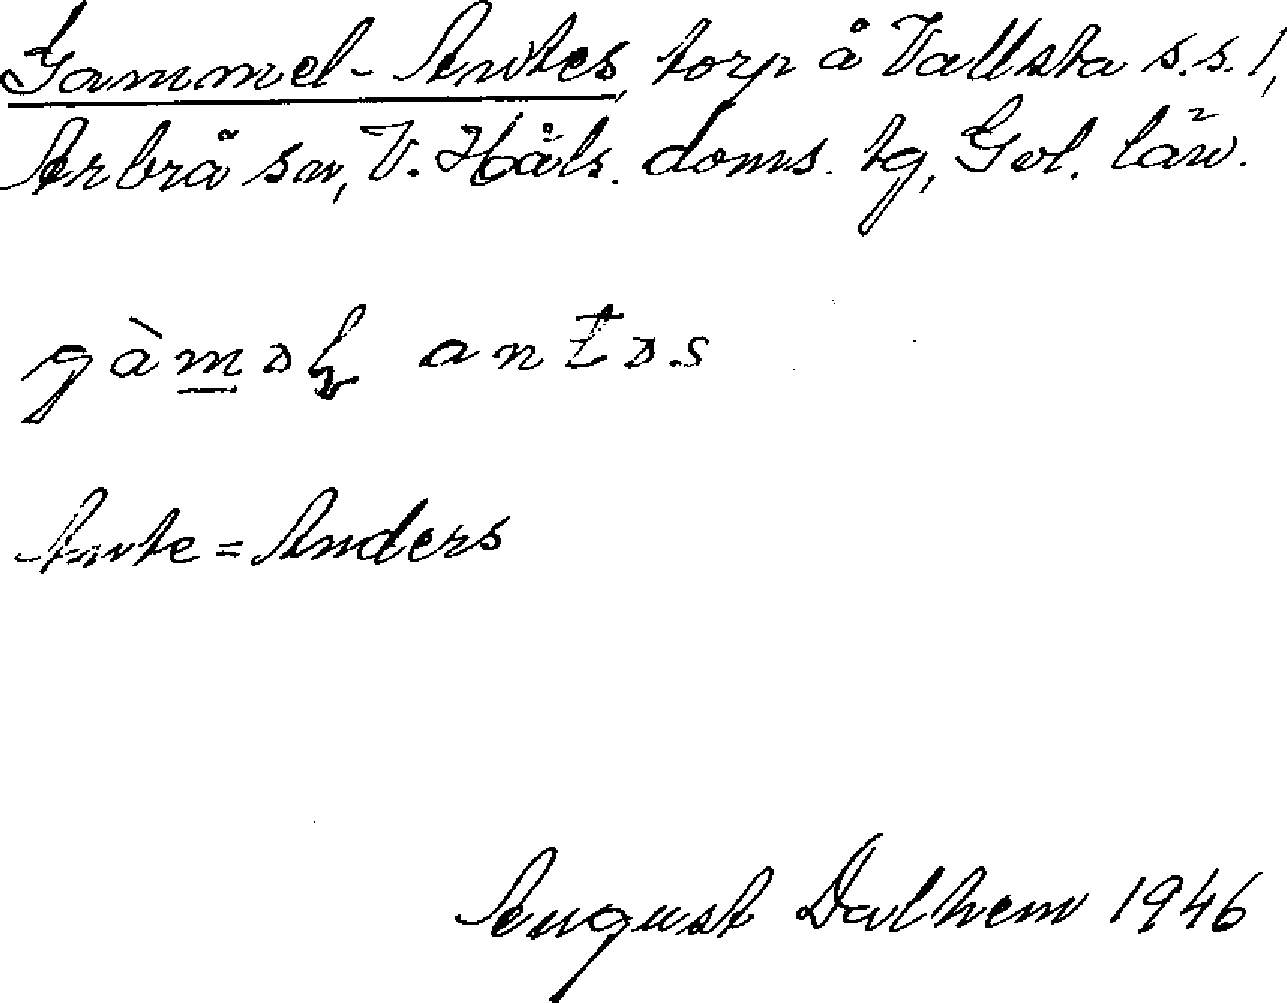 Gammel-Antes, torp å Vallsta s.s. 1,
Arbrå sn, V. Häls. doms. tg, Gvl. län.
gàməɫ antəs
Ante = Anders
August Dalhem 1946